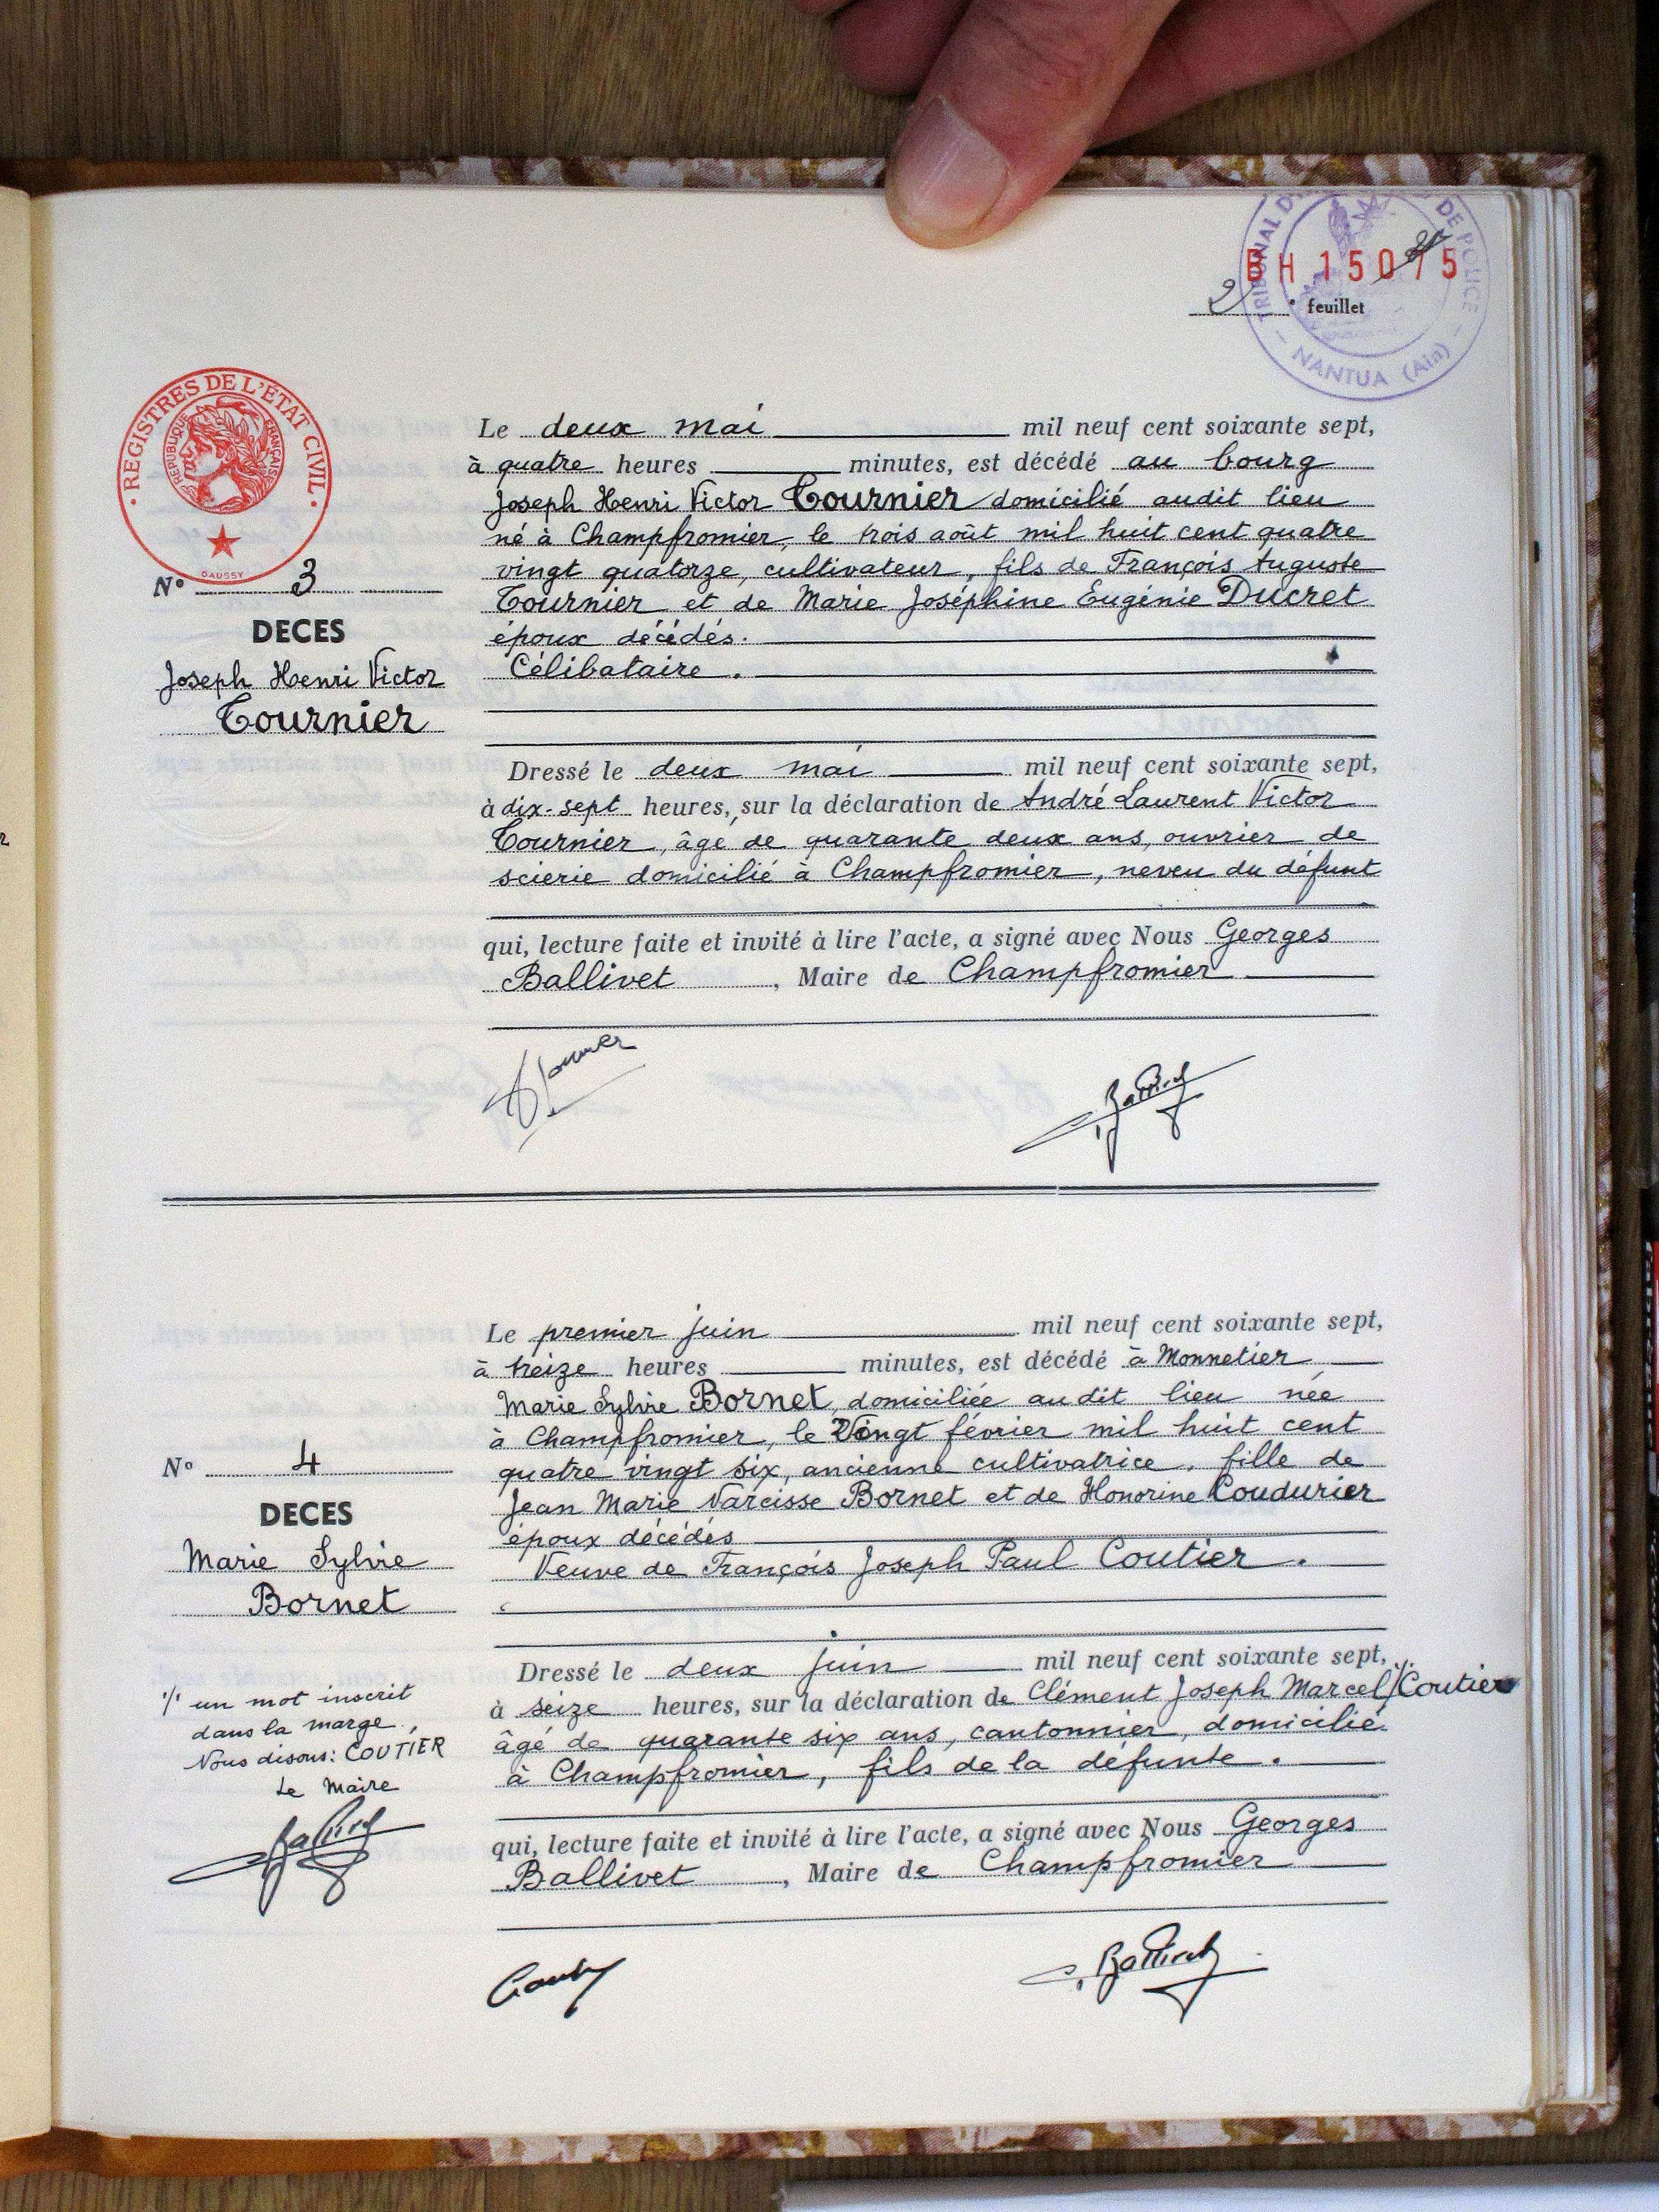 TRIBUNAL DE POLICE
BH 15075
2e feuillet
NANTUA (Ain)
REGISTRES DE L'ÉTAT CIVIL
RÉPUBLIQUE FRANÇAISE
DAUSSY
N° 3
DECES
Joseph Henri Victor
Tournier
Le deux mai mil neuf cent soixante sept,
à quatre heures minutes, est décédé au bourg
Joseph Henri Victor Tournier domicilié audit lieu
né à Champfromier, le trois août mil huit cent quatre
vingt quatorze, cultivateur, fils de François Auguste
Tournier et de Marie Joséphine Eugénie Ducret
époux décédés.
Célibataire.
Dressé le deux mai mil neuf cent soixante sept,
à dix-sept heures, sur la déclaration de André Laurent Victor
Tournier, âgé de quarante deux ans, ouvrier de
scierie domicilié à Champfromier, neveu du défunt
qui, lecture faite et invité à lire l'acte, a signé avec Nous Georges
Ballivet, Maire de Champfromier
N° 4
DECES
Marie Sylvie
Bornet
Le premier juin mil neuf cent soixante sept,
à treize heures minutes, est décédé à Monnetier
Marie Sylvie Bornet, domiciliée audit lieu née
à Champfromier, le Vingt février mil huit cent
quatre vingt six, ancienne cultivatrice, fille de
Jean Marie Narcisse Bornet et de Honorine Coudurier
époux décédés
Veuve de François Joseph Paul Coutier.
Dressé le deux juin mil neuf cent soixante sept,
à seize heures, sur la déclaration de Clément Joseph Marcel /Coutier
âgé de quarante six ans, cantonnier, domicilié
à Champfromier, fils de la défunte.
qui, lecture faite et invité à lire l'acte, a signé avec Nous Georges
Ballivet, Maire de Champfromier
'/' un mot inscrit
dans la marge.
Nous disons: COUTIER
Le Maire